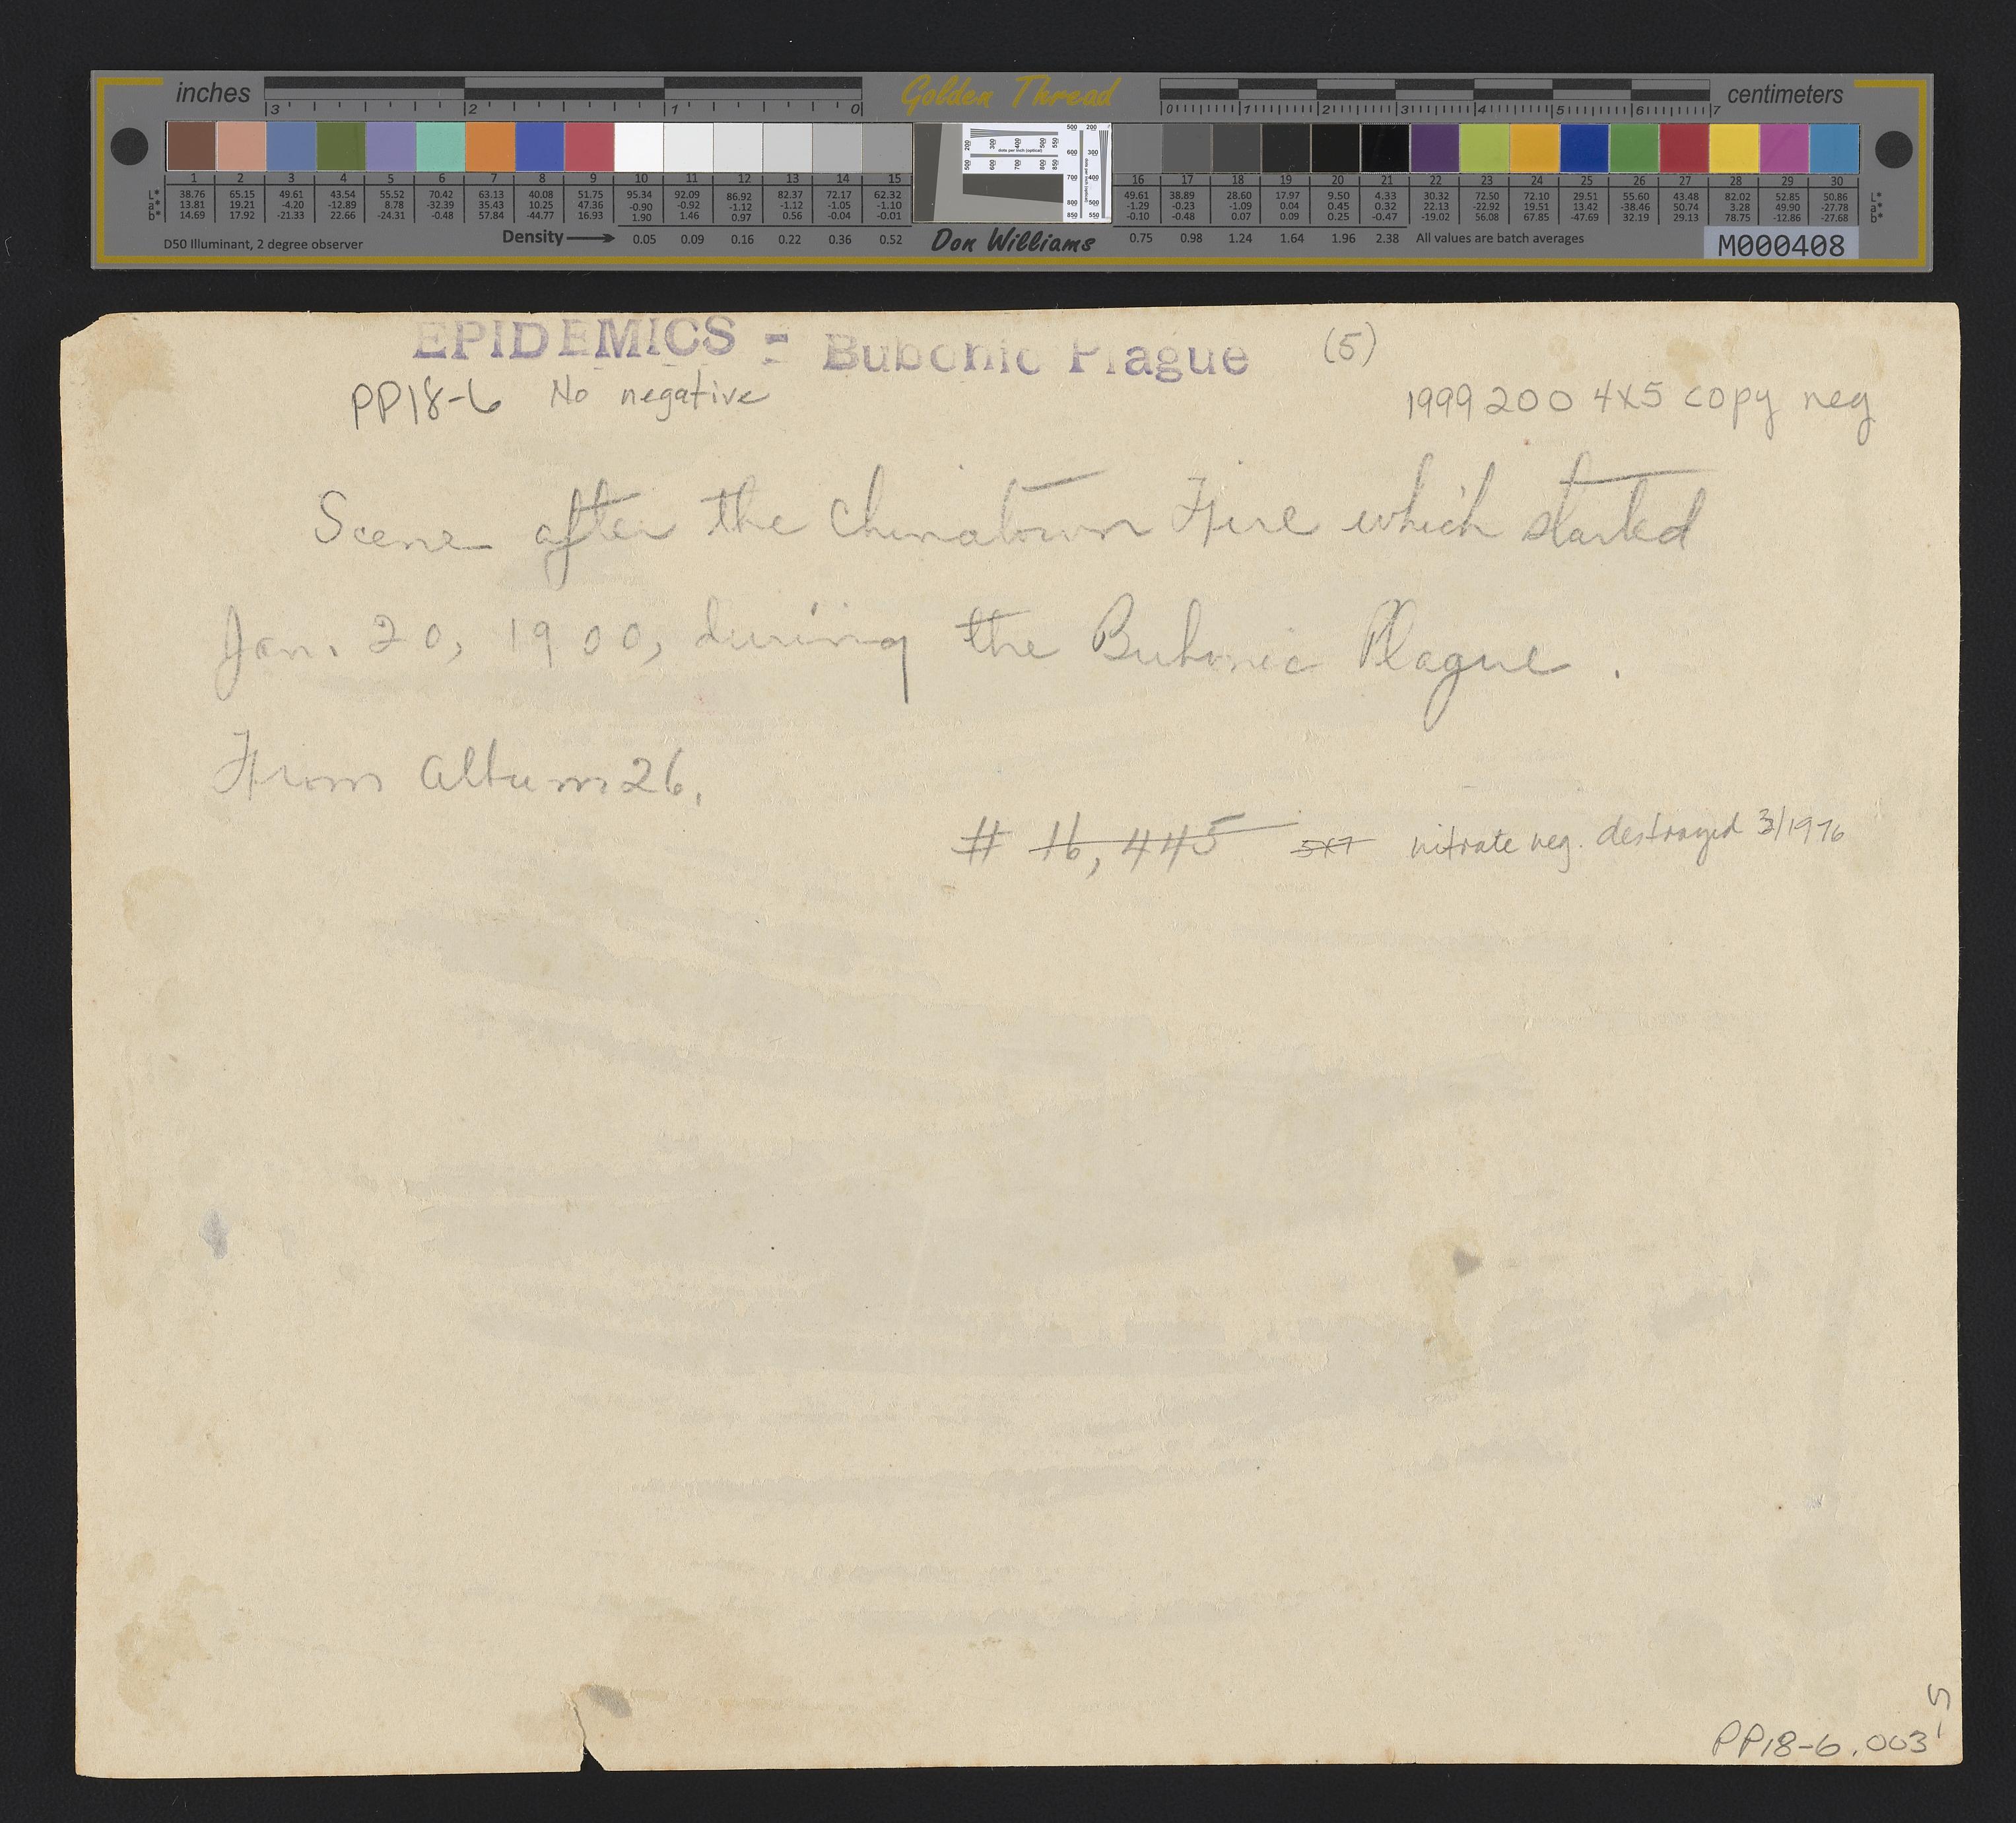 inches Golden Thread centimeters
3 2 1 0 0 1 2 3 4 5 6 7
1 2 3 4 5 6 7 8 9 10 11 12 13 14 15 16 17 18 19 20 21 22 23 24 25 26 27 28 29 30
L* 38.76 65.15 49.61 43.54 55.52 70.42 63.13 40.08 51.75 95.34 92.09 86.92 82.37 72.17 62.32 49.61 38.89 28.60 17.97 9.50 4.33 30.32 72.50 72.10 29.51 55.60 43.48 82.02 52.85 50.86 L*
a* 13.81 19.21 -4.20 -12.89 8.78 -32.39 35.43 10.25 47.36 -0.90 -0.92 -1.12 -1.12 -1.05 -1.10 -1.29 -0.23 -1.09 0.04 0.45 0.32 22.13 -22.92 19.51 13.42 -38.46 50.74 3.28 49.90 -27.78 a*
b* 14.69 17.92 -21.33 22.66 -24.31 -0.48 57.84 -44.77 16.93 1.90 1.46 0.97 0.56 -0.04 -0.01 -0.10 -0.48 0.07 0.09 0.25 -0.47 -19.02 56.08 67.85 -47.69 32.19 29.13 78.75 -12.86 -27.68 b*
D50 Illuminant, 2 degree observer Density 0.05 0.09 0.16 0.22 0.36 0.52 Don Williams 0.75 0.98 1.24 1.64 1.96 2.38 All values are batch averages M000408
EPIDEMICS = Bubonic Plague (5)
PP18-6 No negative 1999 200 4x5 copy neg
Scene after the Chinatown Fire which started
Jan. 20, 1900, during the Bubonic Plague.
From Album 26.
# 16,445 5x7 nitrate neg. destroyed 3/1976
PP18-6.003